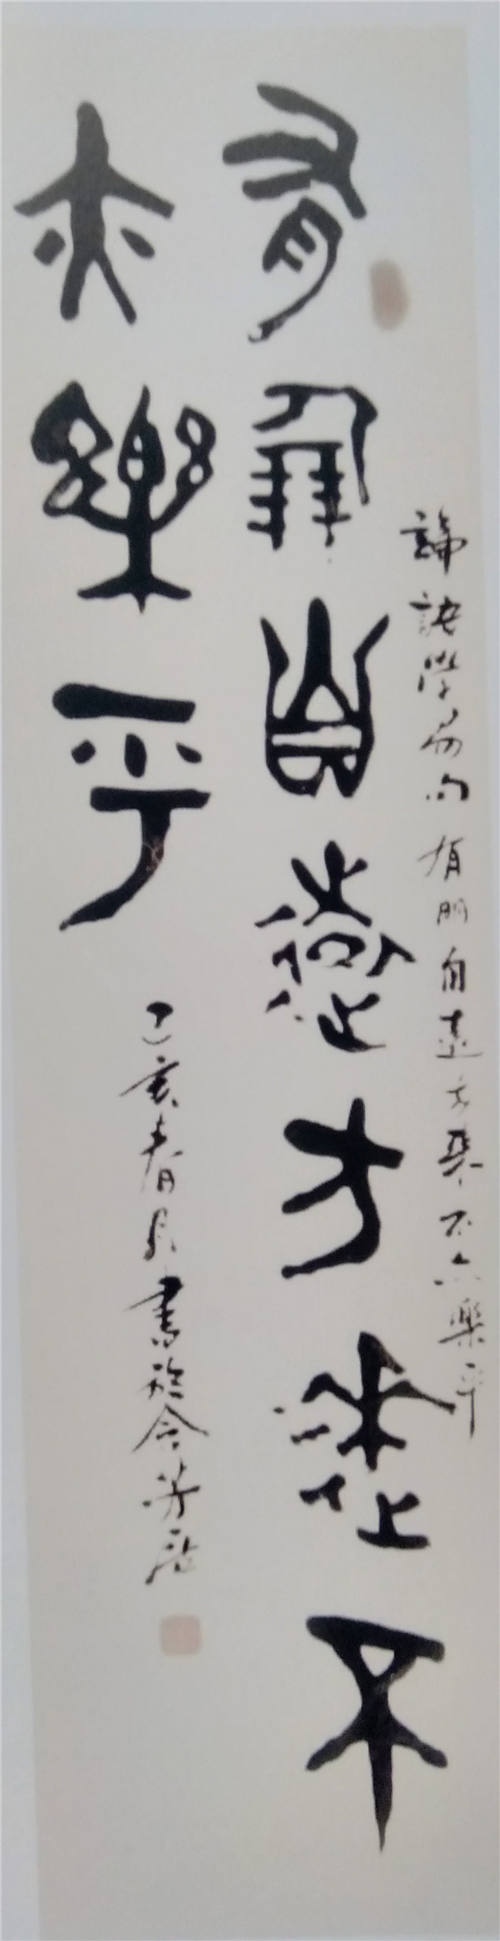 論語學而句有朋自遠方來不亦樂乎
有朋自遠方來不
亦樂乎
己亥春月書於芳